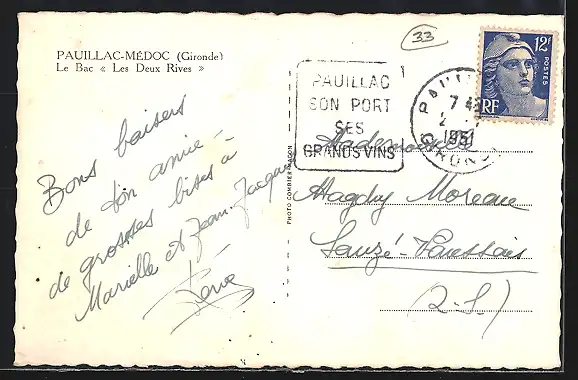 33
PAUILLAC-MÉDOC (Gironde)
Le Bac « Les Deux Rives »
12F
POSTES
RF
PAUILLAC
SON PORT
SES
GRANDS VINS
7
2
1951
GIRONDE
Bons baisers
de ton amie
de grosses bises à
Marielle et Jean-Jacques
Mademoiselle
Magdy Moreau
Sauzé-Vaussais
(D.S.)
PHOTO COMBIER MACON